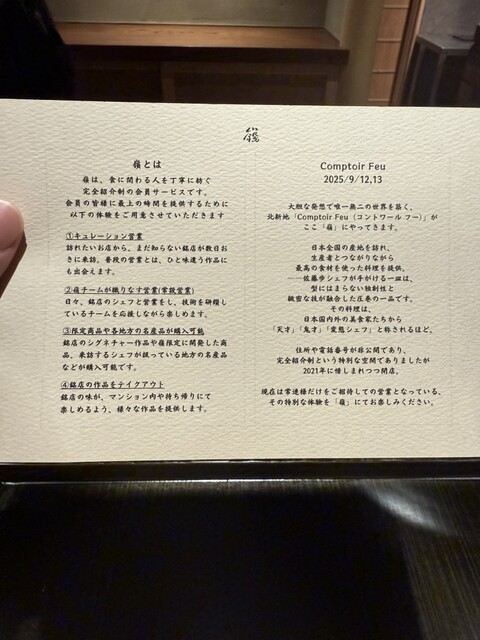 嶺とは
嶺は、食に関わる人を丁寧に紡ぐ
完全紹介制の会員サービスです。
会員の皆様に最上の時間を提供するために
以下の体験をご用意させていただきます
①キュレーション営業
訪れたいお店から、まだ知らない銘店が数日お
きに来訪。普段の営業とは、ひと味違う作品に
も出会えます。
②嶺チームが織りなす営業(常設営業)
日々、銘店のシェフと営業をし、技術を研鑽し
ているチームを応援しながら楽しめます。
③限定商品や各地方の名産品が購入可能
銘店のシグネチャー作品や嶺限定に開発した商
品、来訪するシェフが扱っている地方の名産品
などが購入可能です。
④銘店の作品をテイクアウト
銘店の味が、マンション内や持ち帰りにて
楽しめるよう、様々な作品を提供します。
Comptoir Feu
2025/9/12,13
大胆な発想で唯一無二の世界を築く、
北新地「Comptoir Feu（コントワール フー）」が
ここ「嶺」にやってきます。
日本全国の産地を訪れ、
生産者とつながりながら
最高の食材を使った料理を提供。
——佐藤歩シェフが手がける一皿は、
型にはまらない独創性と
緻密な技が融合した圧巻の一品です。
その料理は、
日本国内外の美食家たちから
「天才」「鬼才」「変態シェフ」と称されるほど。
住所や電話番号が非公開であり、
完全紹介制という特別な空間でありましたが
2021年に惜しまれつつ閉店。
現在は常連様だけをご招待しての営業となっている、
その特別な体験を「嶺」にてお楽しみください。